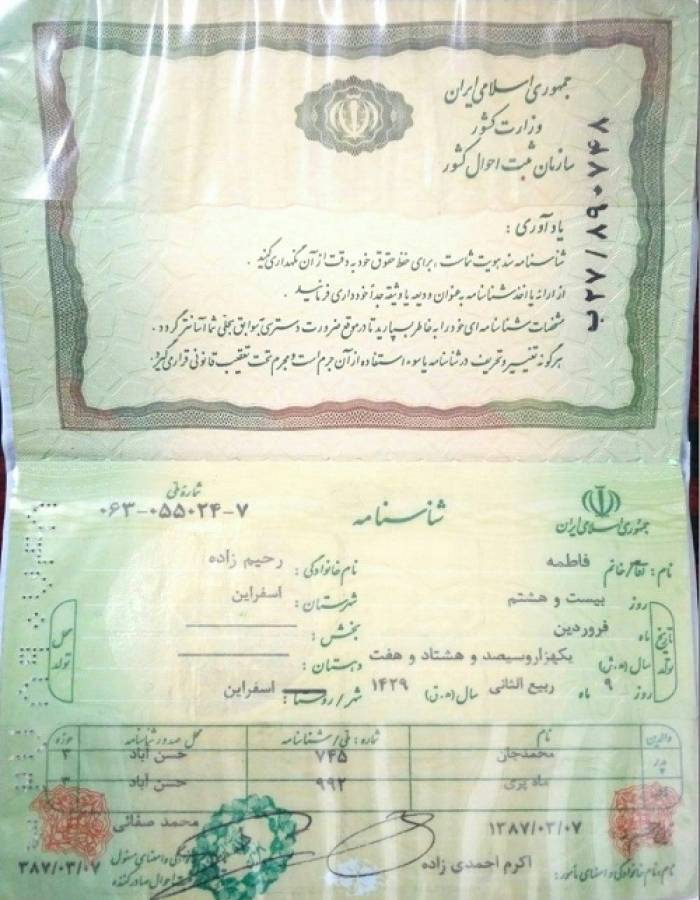 جمهوری اسلامی ایران
وزارت کشور
سازمان ثبت احوال کشور
ب۲۷/۸۹۰۷۴۸
یادآوری :
شناسنامه سند هویت شماست ، برای حفظ حقوق خود به دقت از آن نگهداری کنید .
از ارائه یا اخذ شناسنامه به عنوان ودیعه یا وثیقه جداً خودداری فرمائید .
مشخصات شناسنامه ای خود را به خاطر بسپارید تا در موقع ضرورت دسترسی به سوابق سجلی شما آسانتر گردد .
هرگونه تغییر و تحریف در شناسنامه یا سوء استفاده از آن جرم است و مجرم تحت تعقیب قانونی قرار می گیرد .
جمهوری اسلامی ایران
شناسنامه
شماره ملی
۰۶۳-۰۵۵۰۲۴-۷
نام : آقا/خانم فاطمه نام خانوادگی : رحیم زاده
تاریخ تولد
روز بیست و هشتم شهرستان : اسفراین
ماه فروردین بخش :
سال (ه.ش) یکهزاروسیصد و هشتاد و هفت دهستان :
روز ۹ ماه ربیع الثانی سال (ه.ق) ۱۴۲۹ شهر/روستا : اسفراین
محل تولد
والدین نام شماره : ملی/شناسنامه محل صدور شناسنامه حوزه
پدر محمدجان ۷۴۵ حسن آباد ۲
ماه پری ۹۹۲ حسن آباد ۳
۱۳۸۷/۰۳/۰۷ محمد صفائی
نام،نام خانوادگی و امضای مأمور : اکرم احمدی زاده
خانوادگی و امضای مسئول
ثبت احوال صادرکننده
۳۸۷/۰۳/۰۷